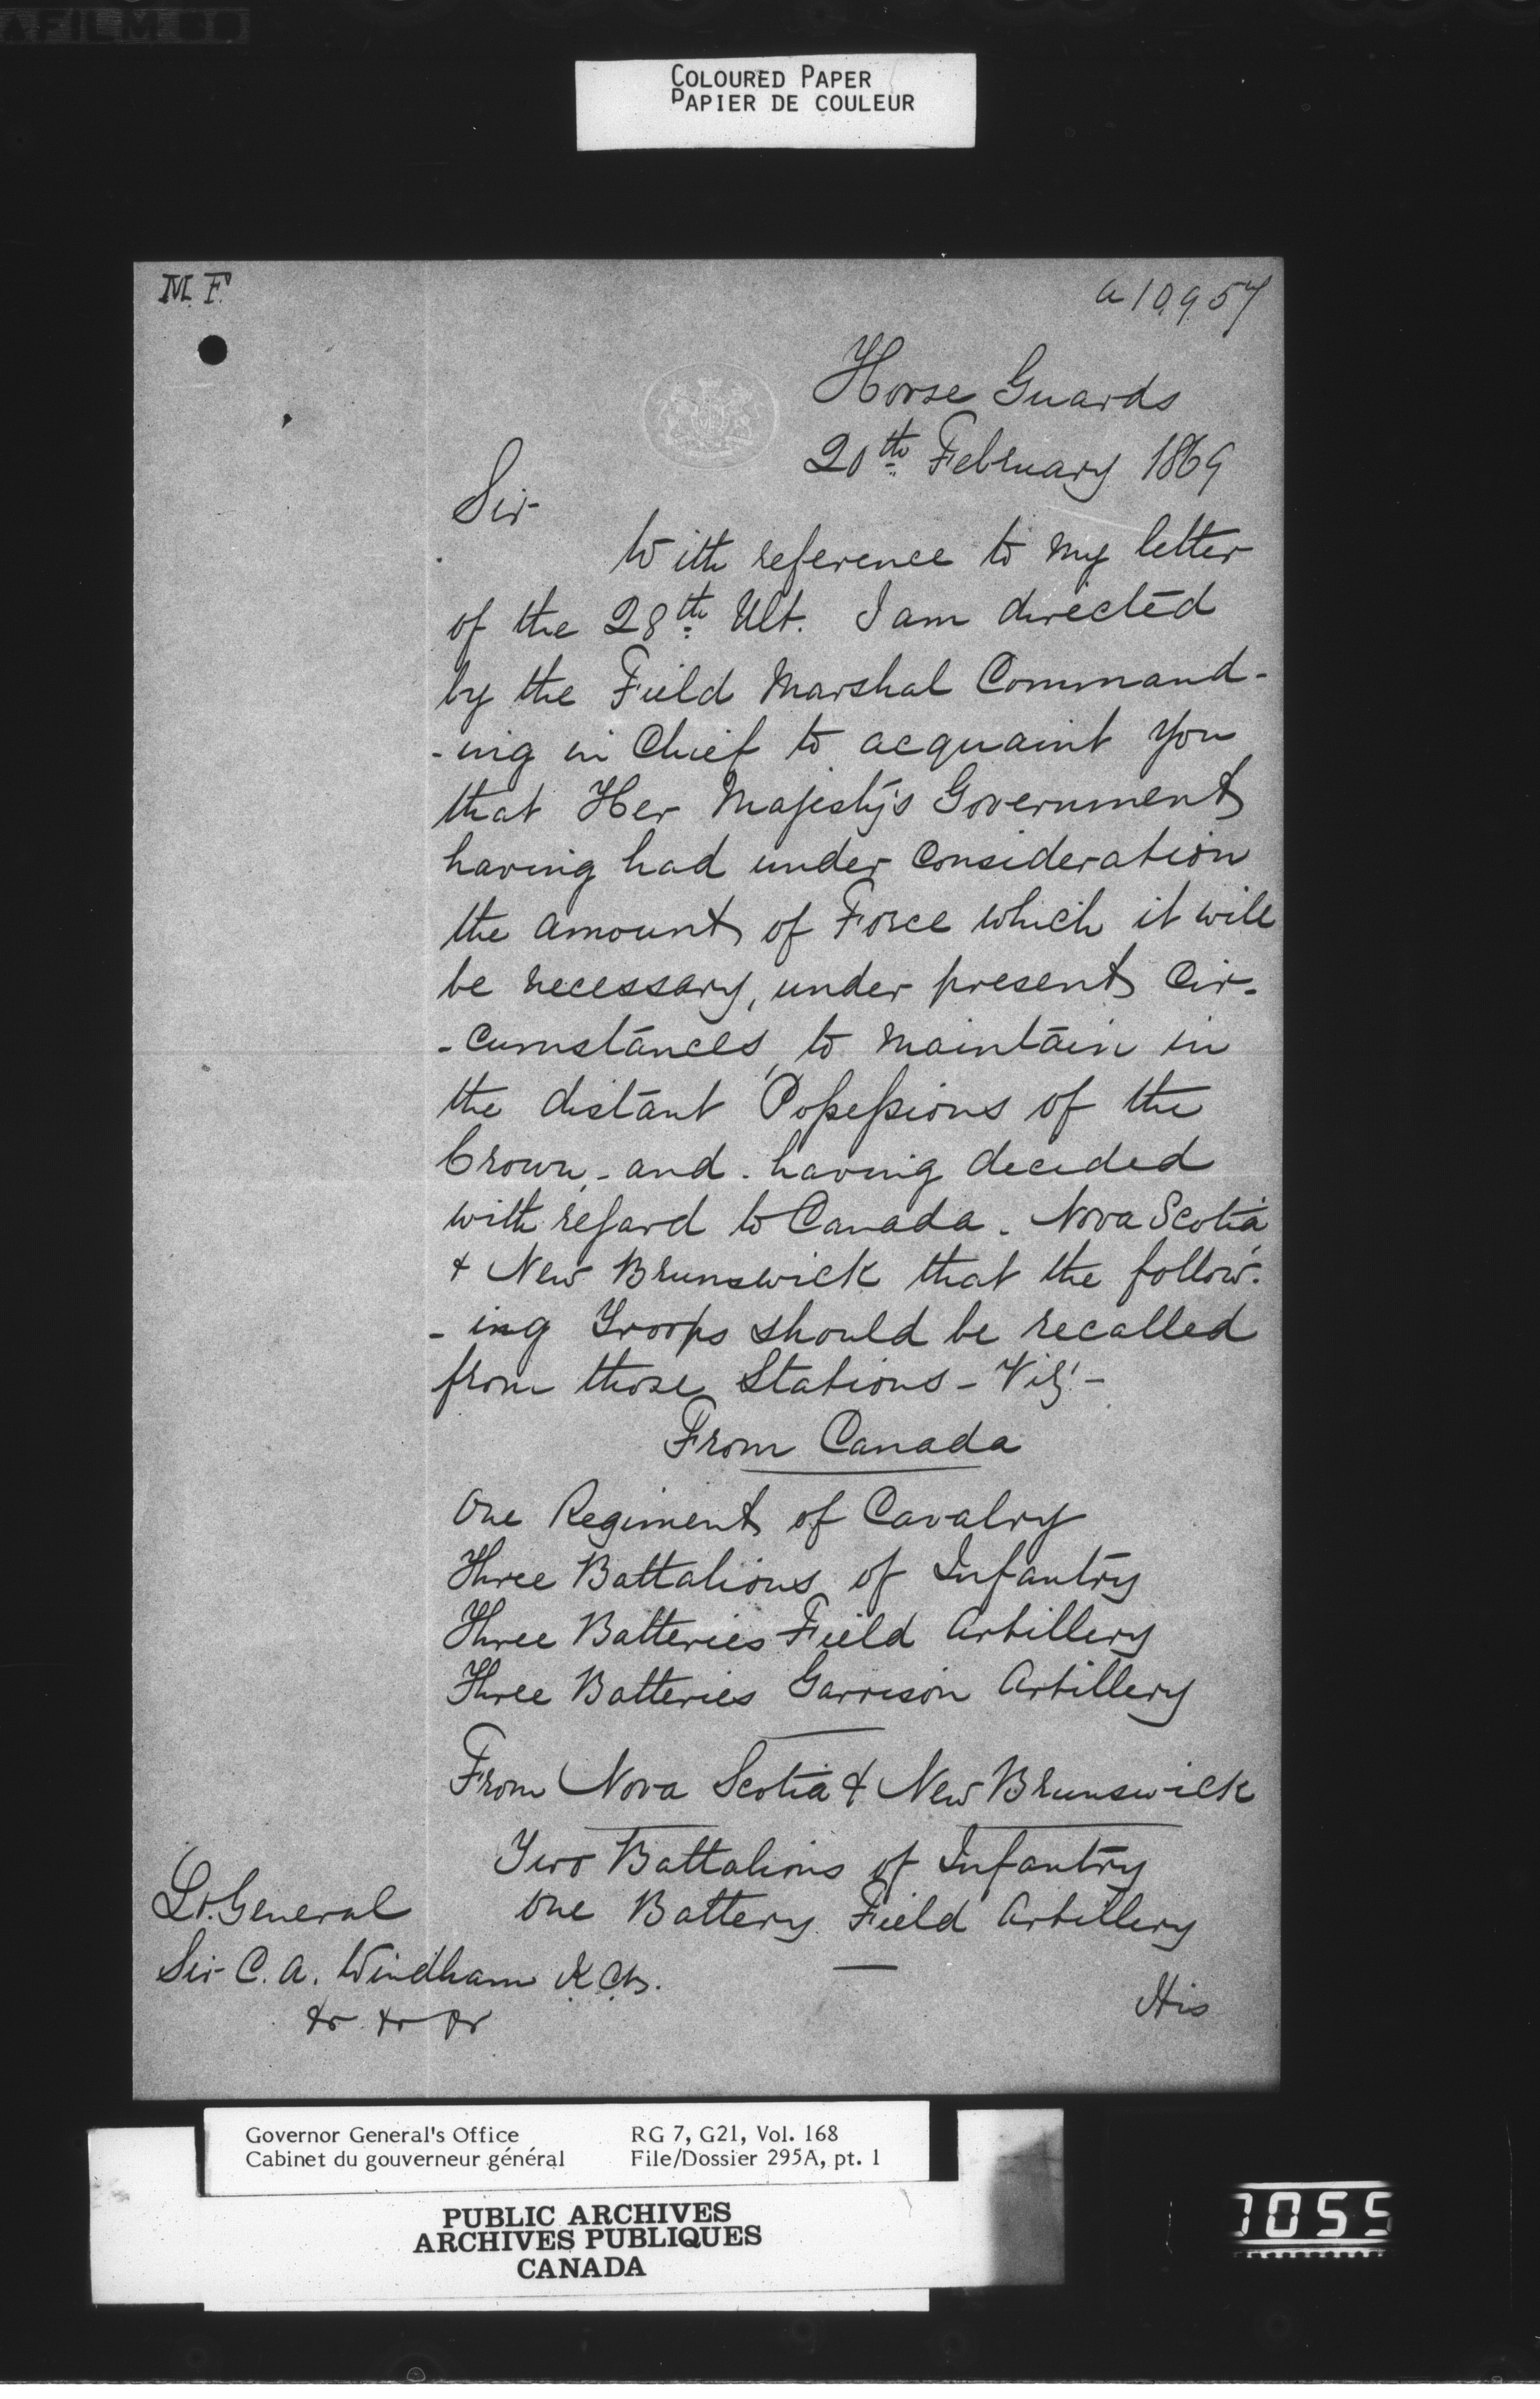 COLOURED PAPER
PAPIER DE COULEUR
M.F.
a 10957
Horse Guards
20th February 1869
Sir
With reference to my letter
of the 28th Ult. I am directed
by the Field Marshal Command-
-ing in Chief to acquaint you
that Her Majesty's Government
having had under consideration
the amount of Force which it will
be necessary, under present Cir-
-cumstances, to maintain in
the distant Possessions of the
Crown, - and - having decided
with regard to Canada - Nova Scotia
& New Brunswick that the follow-
-ing Troops should be recalled
from those Stations - Viz! -
From Canada
One Regiment of Cavalry
Three Battalions of Infantry
Three Batteries Field Artillery
Three Batteries Garrison Artillery
From Nova Scotia & New Brunswick
Two Battalions of Infantry
One Battery Field Artillery
Lt. General
Sir C. A. Windham K.C.B.
&c &c &c
His
Governor General's Office RG 7, G21, Vol. 168
Cabinet du gouverneur général File/Dossier 295A, pt. 1
PUBLIC ARCHIVES
ARCHIVES PUBLIQUES
CANADA
1055